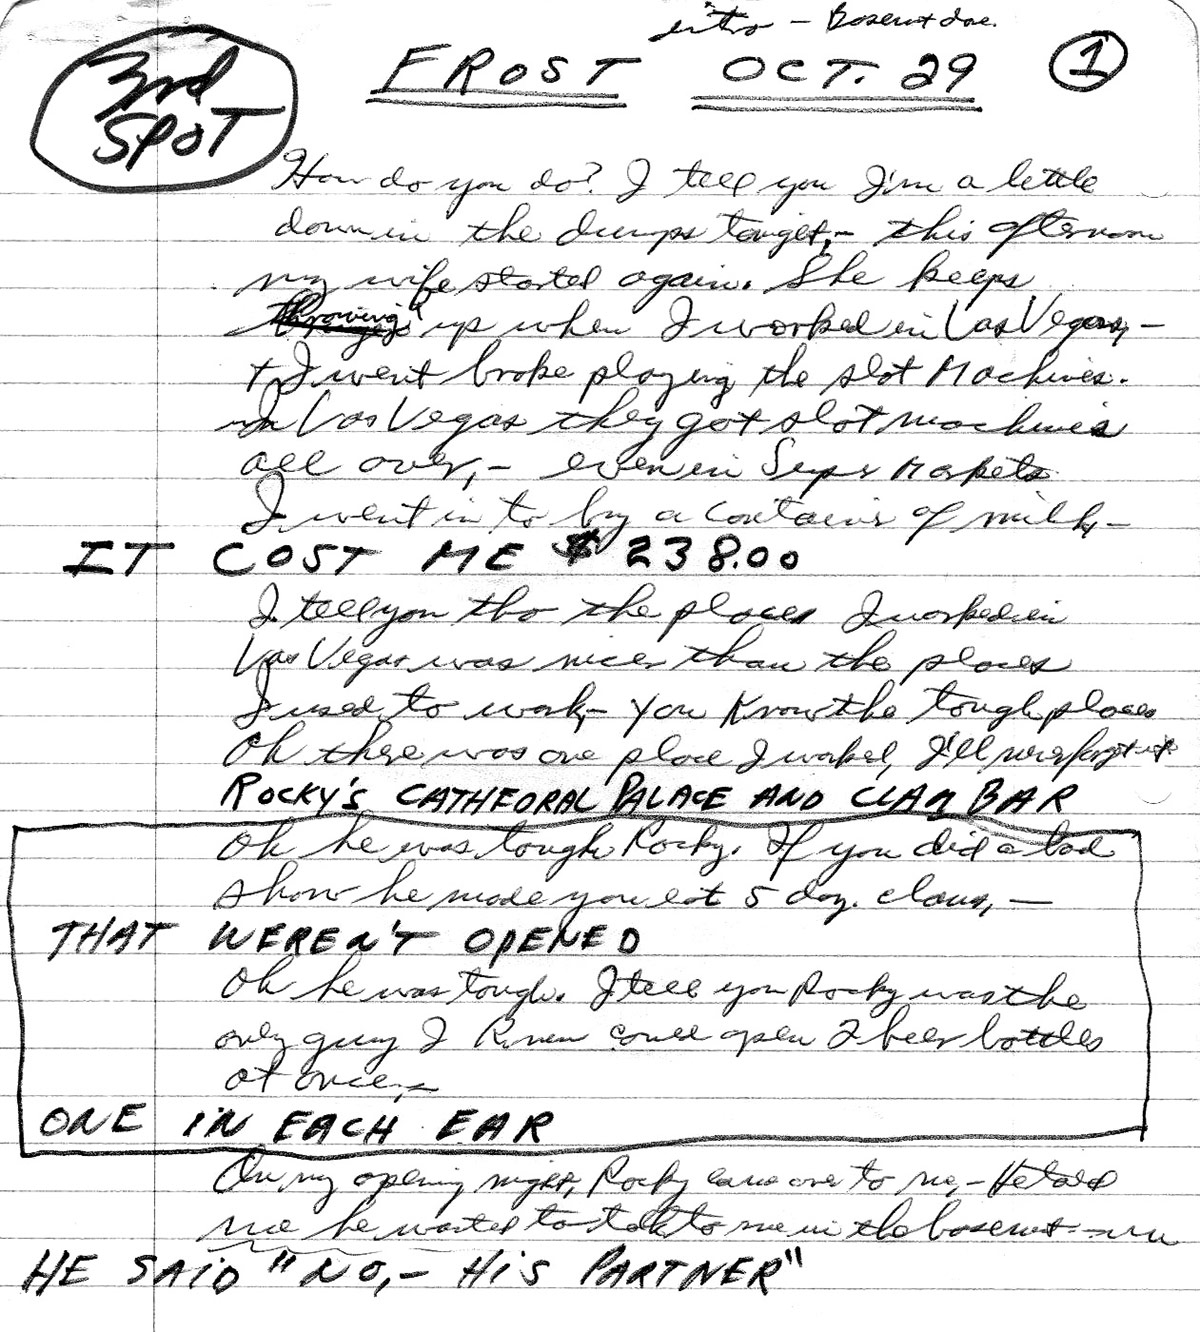 intro - Basemt doc.
3rd
SPOT
FROST OCT. 29
1
How do you do? I tell you I'm a little
down in the dumps tonight, - this afternoon
my wife started again. She keeps
throwing up when I worked in Las Vegas, -
+ I went broke playing the slot machines.
in Las Vegas they got slot machines
all over, - even in Super Markets
I went in to buy a container of milk, -
IT COST ME $238.00
I tell you tho the places I worked in
Las Vegas was nicer than the places
I used to work, - you know the tough places
Oh there was one place I worked, I'll never forget it
ROCKY'S CATHEDRAL PALACE AND CLAM BAR
Oh he was tough Rocky. If you did a bad
show he made you eat 5 doz. clams, -
THAT WEREN'T OPENED
Oh he was tough. I tell you Rocky was the
only guy I knew could open 2 beer bottles
at once, -
ONE IN EACH EAR
On my opening night, Rocky came over to me, - He told
me he wanted to talk to me in the basemt -
HE SAID "NO, - HIS PARTNER"